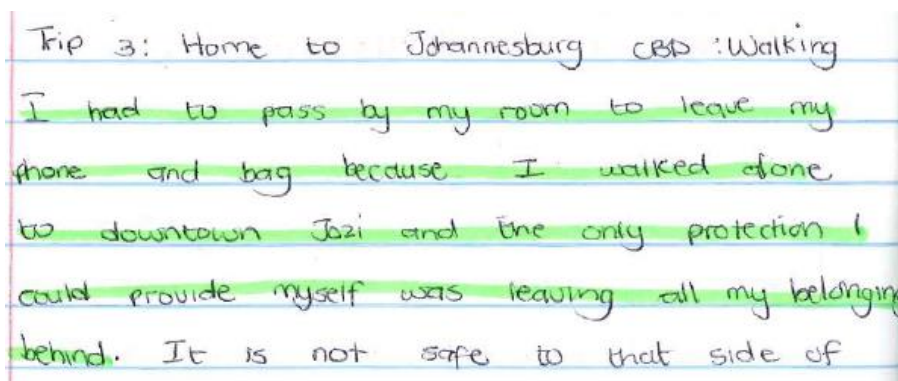 Trip 3: Home to Johannesburg CBD : Walking
I had to pass by my room to leave my
phone and bag because I walked alone
to downtown Jozi and the only protection I
could provide myself was leaving all my belonging
behind. It is not safe to that side of